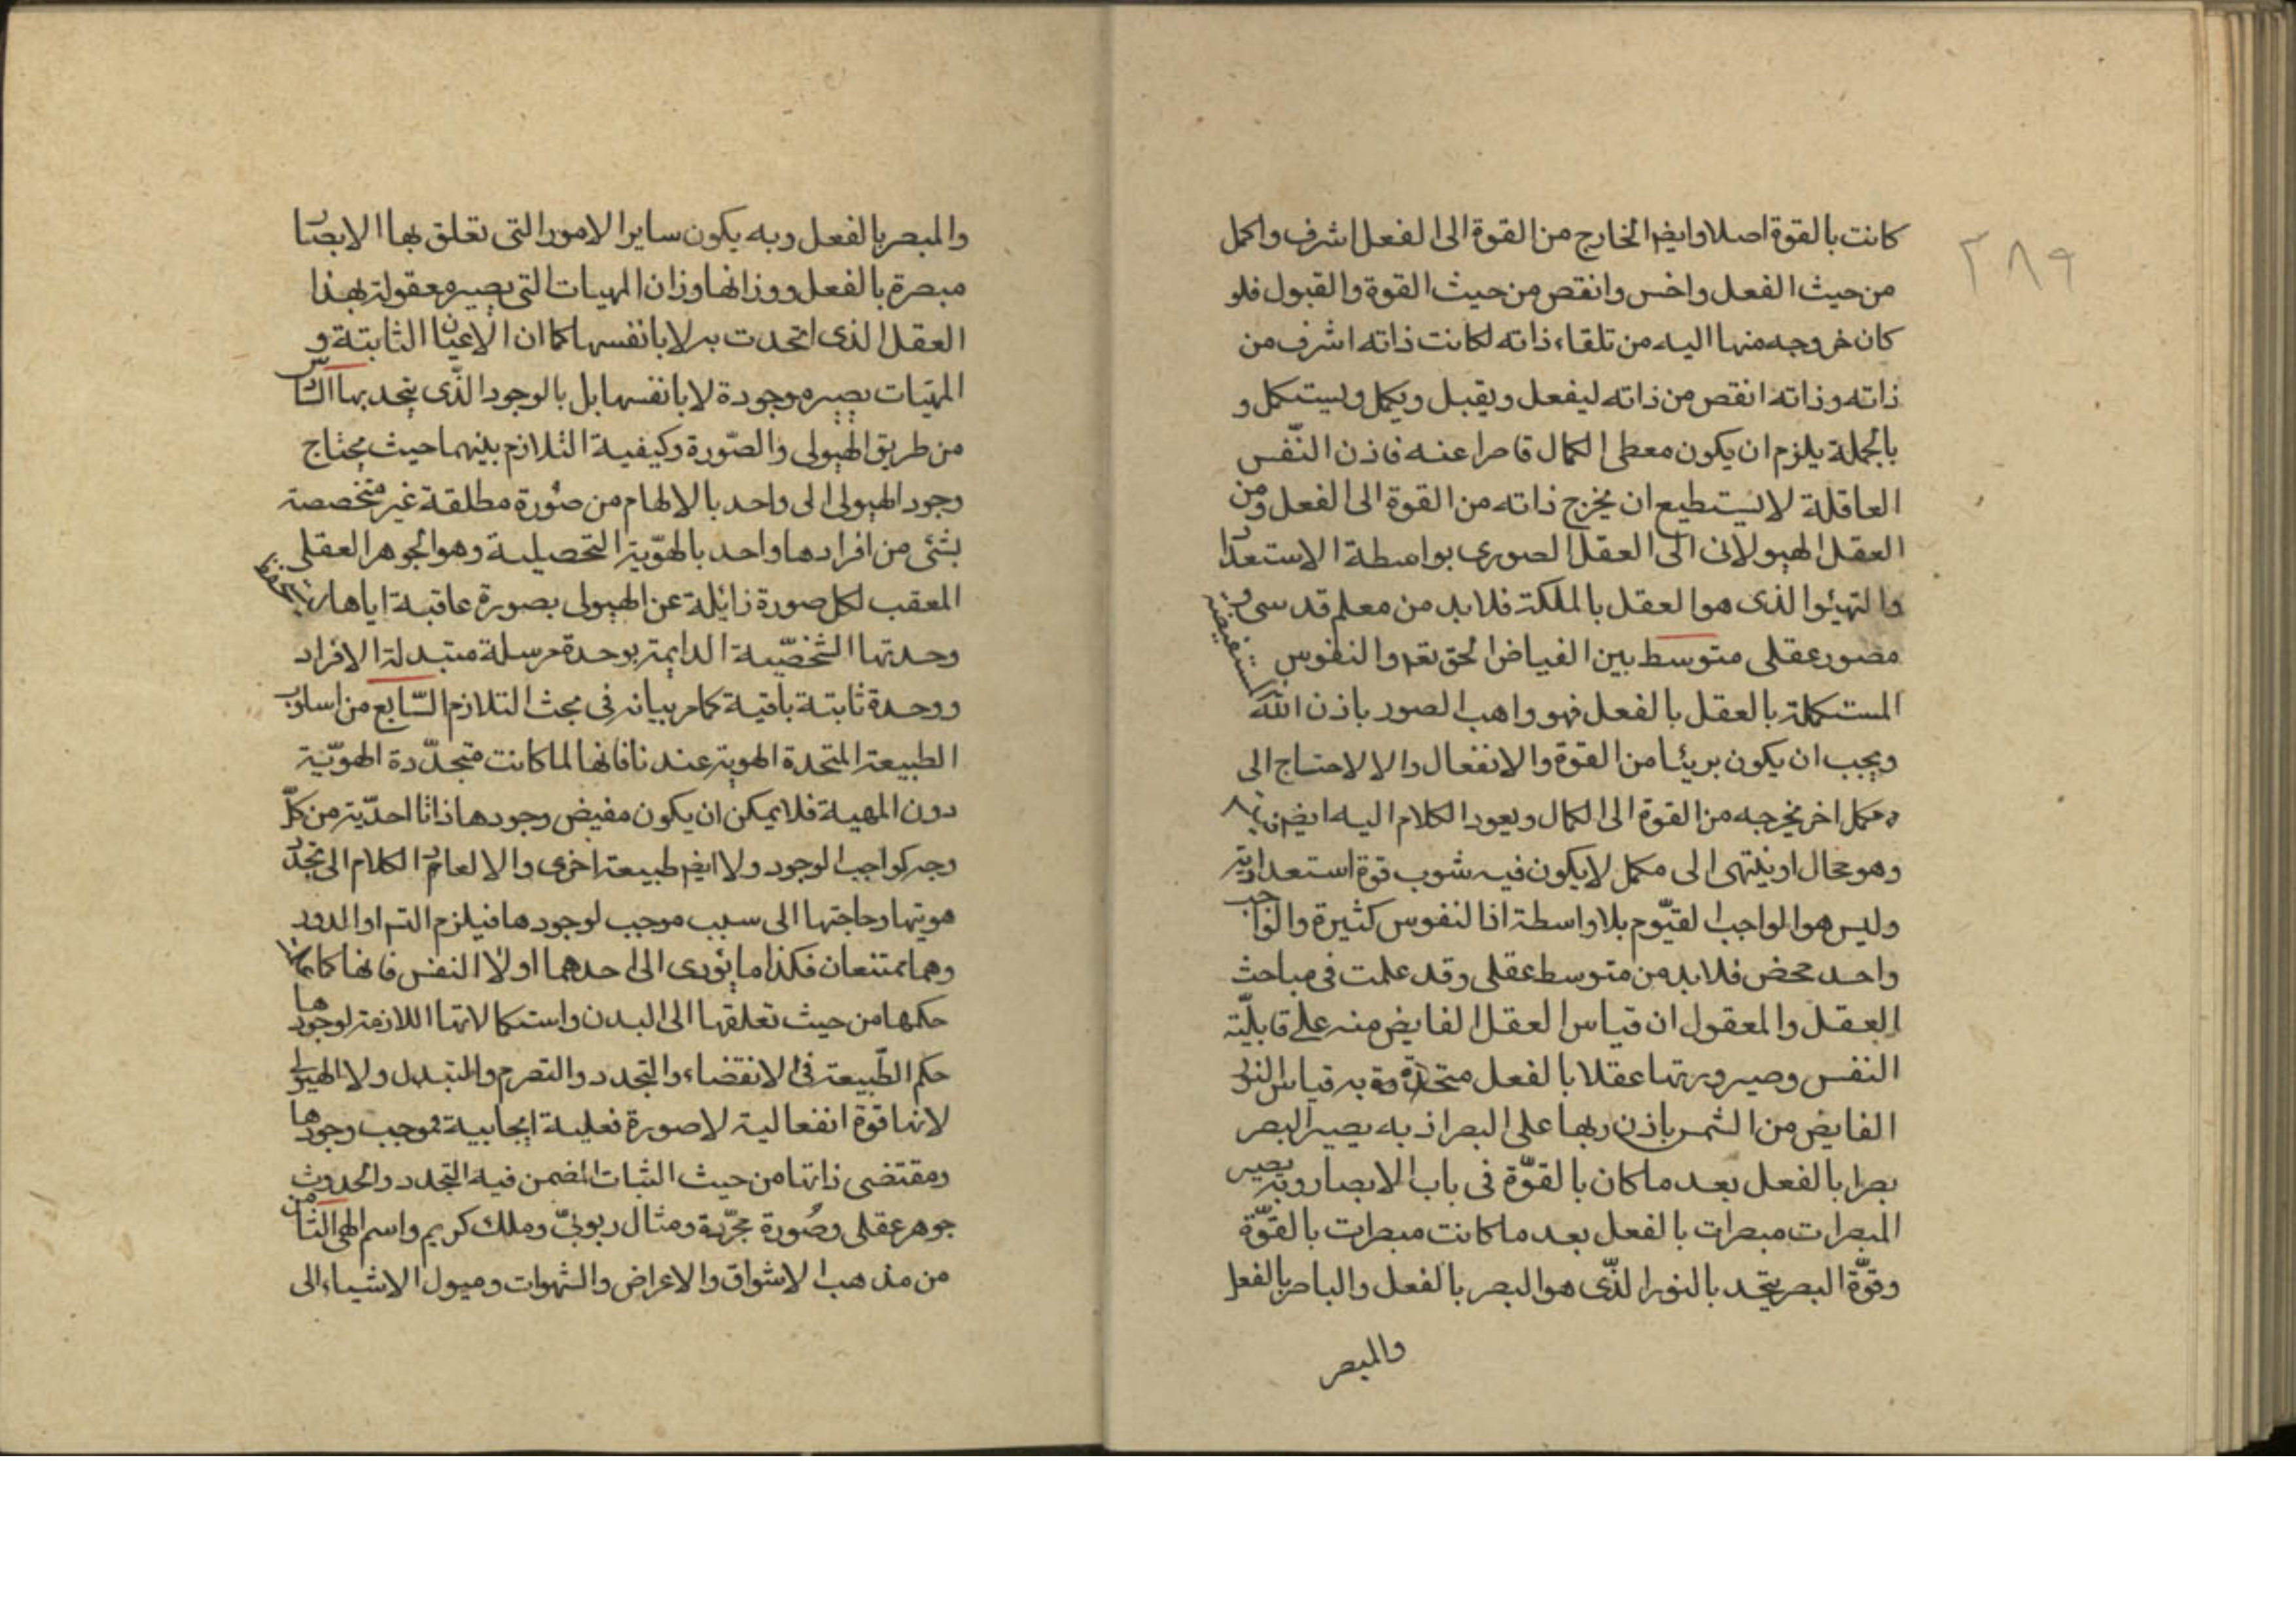 ٢٨٩
كانت بالقوة اصلا وايضا الخارج من القوة الى الفعل اشرف واكمل
من حيث الفعل واخس وانقص من حيث القوة والقبول فلو
كان خروجه منها اليه من تلقاء ذاته لكانت ذاته اشرف من
ذاته وذاته انقص من ذاته ليفعل ويقبل ويكمل ويستكمل و
بالجملة يلزم ان يكون معطى الكمال قاصرا عنه فاذن النّفس
العاقلة لا يستطيع ان يخرج ذاته من القوة الى الفعل ومن
العقل الهيولانى الى العقل الصورى بواسطة الاستعداد
والتهيئوا الذى هو العقل بالملكة فلابد من معلم قدسى و
مصور عقلى متوسط بين الفياض الحق تعم والنفوس المستفيضة
المستكملة بالعقل بالفعل فهو واهب الصور باذن الله
ويجب ان يكون بريئا من القوة والانفعال والا لاحتاج الى
مكمل اخر يخرجه من القوة الى الكمال ويعود الكلام اليه ايضا
وهو محال او ينتهى الى مكمل لا يكون فيه شوب قوة استعدادية
وليس هو الواجب القيّوم بلا واسطة اذ النفوس كثيرة والواجب
واحد محض فلابد من متوسط عقلى وقد علمت فى مباحث
العقل والمعقول ان قياس العقل الفايض منه على قابليّة
النفس وصيرورتها عقلا بالفعل متحدة به قياس النور
الفايض من الشمس باذن ربها على البصر اذ به يصير البصر
بصرا بالفعل بعد ما كان بالقوّة فى باب الابصار وبه يصير
المبصرات مبصرات بالفعل بعد ما كانت مبصرات بالقوّة
وقوّة البصر يتحد بالنور الذّى هو البصر بالفعل والباصر بالفعل
والمبصر
والمبصر بالفعل وبه يكون ساير الامور التى تعلق بها الابصار
مبصرة بالفعل ووزانها وزان المهيات التى يصير معقولة بهذا
العقل الذى اتحدت به لا بانفسها كما ان الاعيان الثابتة و
المهيّات يصير موجودة لا بانفسها بل بالوجود الذّى يتحد بها السادس
من طريق الهيولى والصّورة وكيفية التلازم بينهما حيث يحتاج
وجود الهيولى الى واحد بالابهام من صورة مطلقة غير متخصصة
بشئى من افرادها واحد بالهوّية التحصيلية وهو الجوهر العقلى
المعقب لكل صورة زائلة عن الهيولى بصورة عاقبة اياها
وحدتها الشخصّية الدايمة بوحدة مرسلة متبدلة الافراد
ووحدة ثابتة باقية كما مر بيانه فى مبحث التلازم السّابع من اسلوب
الطبيعة المتجددة الهوية عندنا فانها لما كانت متجدّدة الهوّية
دون المهية فلا يمكن ان يكون مفيض وجودها ذاتا احدّية من كلّ
وجه كواجب الوجود ولا ايضا طبيعة اخرى والا لعاد الكلام الى تجدد
هويتها وحاجتها الى سبب موجب لوجودها فيلزم التس او الدور
وهما ممتنعان فكذا ما يؤدى الى احدهما اولا النفس فانها
حكمها من حيث تعلقها الى البدن واستكمالاتها اللازمة لوجودها
حكم الطّبيعة فى الانقضاء والتجدد والتصرم والتبدل ولا الهيولى
لانها قوة انفعالية لا صورة فعلية ايجابية فموجب وجودها
ومقتضى ذاتها من حيث الثبات المضمن فيه التجدد والحدوث
جوهر عقلى وصُورة مجرّدة ومثال ربوبىّ وملك كريم واسم الهى الثامن
من مذهب الاشواق والاعراض والشهوات وميول الاشياء الى